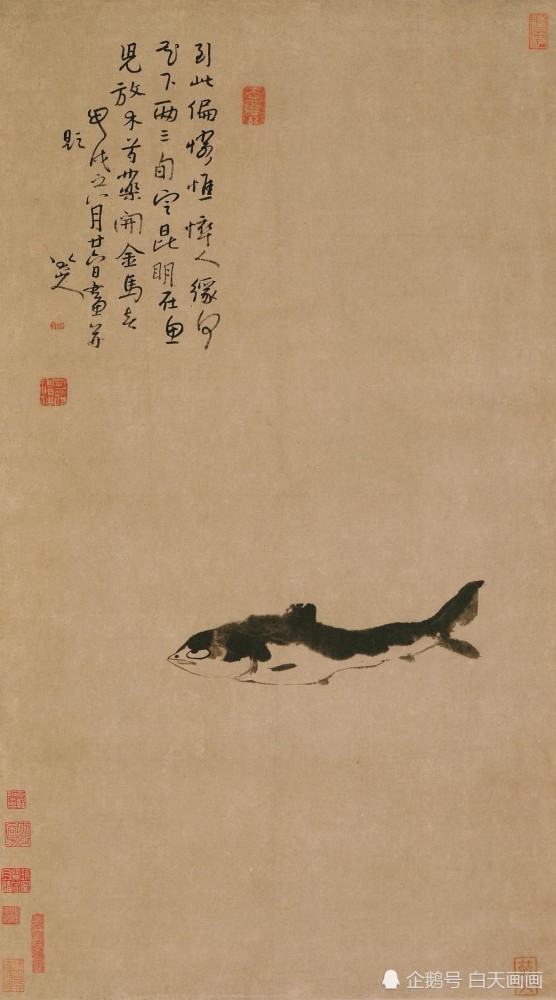 到此偏憐憔悴人緣何
花下兩三旬定昆明在魚
兒放木芍藥開金馬春
甲戌之八月廿六日畫并
題
八大山人
企鹅号 白天画画